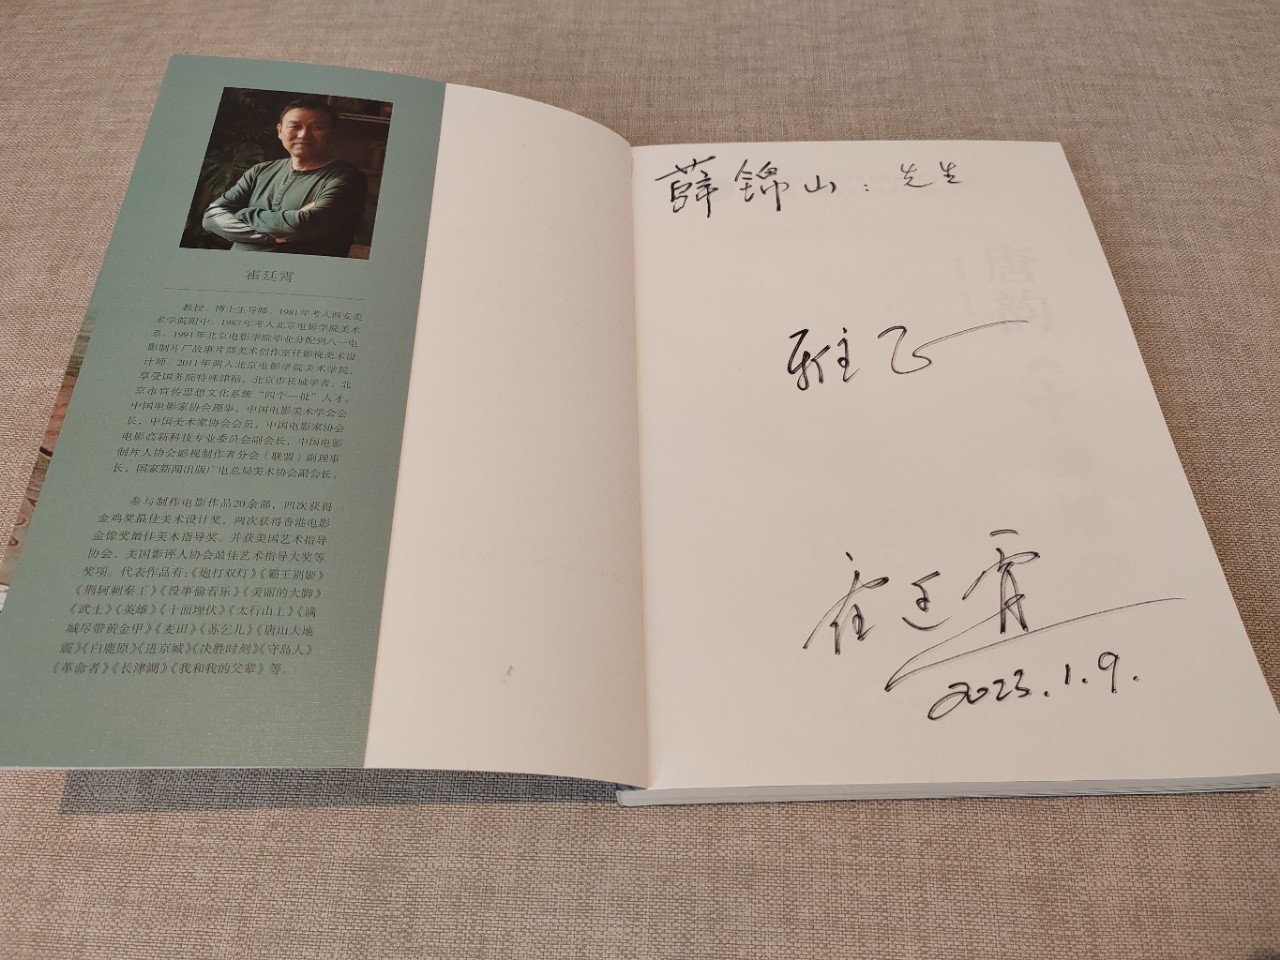 霍廷霄
教授、博士生导师。1981年考入西安美
术学院附中。1987年考入北京电影学院美术
系。1991年北京电影学院毕业分配到八一电
影制片厂故事片部美术创作室任影视美术设
计师。2011年调入北京电影学院美术学院。
享受国务院特殊津贴，北京市长城学者、北
京市宣传思想文化系统“四个一批”人才。
中国电影家协会理事，中国电影美术学会会
长，中国美术家协会会员，中国电影家协会
电影高新科技专业委员会副会长，中国电影
制片人协会影视制作者分会（联盟）副理事
长，国家新闻出版广电总局美术协会副会长。
参与制作电影作品20余部，四次获得
金鸡奖最佳美术设计奖，两次获得香港电影
金像奖最佳美术指导奖。并获美国艺术指导
协会、美国影评人协会最佳艺术指导大奖等
奖项。代表作品有：《炮打双灯》《霸王别姬》
《荆轲刺秦王》《没事偷着乐》《美丽的大脚》
《武士》《英雄》《十面埋伏》《太行山上》《满
城尽带黄金甲》《麦田》《苏乞儿》《唐山大地
震》《白鹿原》《进京城》《决胜时刻》《守岛人》
《革命者》《长津湖》《我和我的父辈》等。
薛锦山：先生
雅正
霍廷霄
2023.1.9.